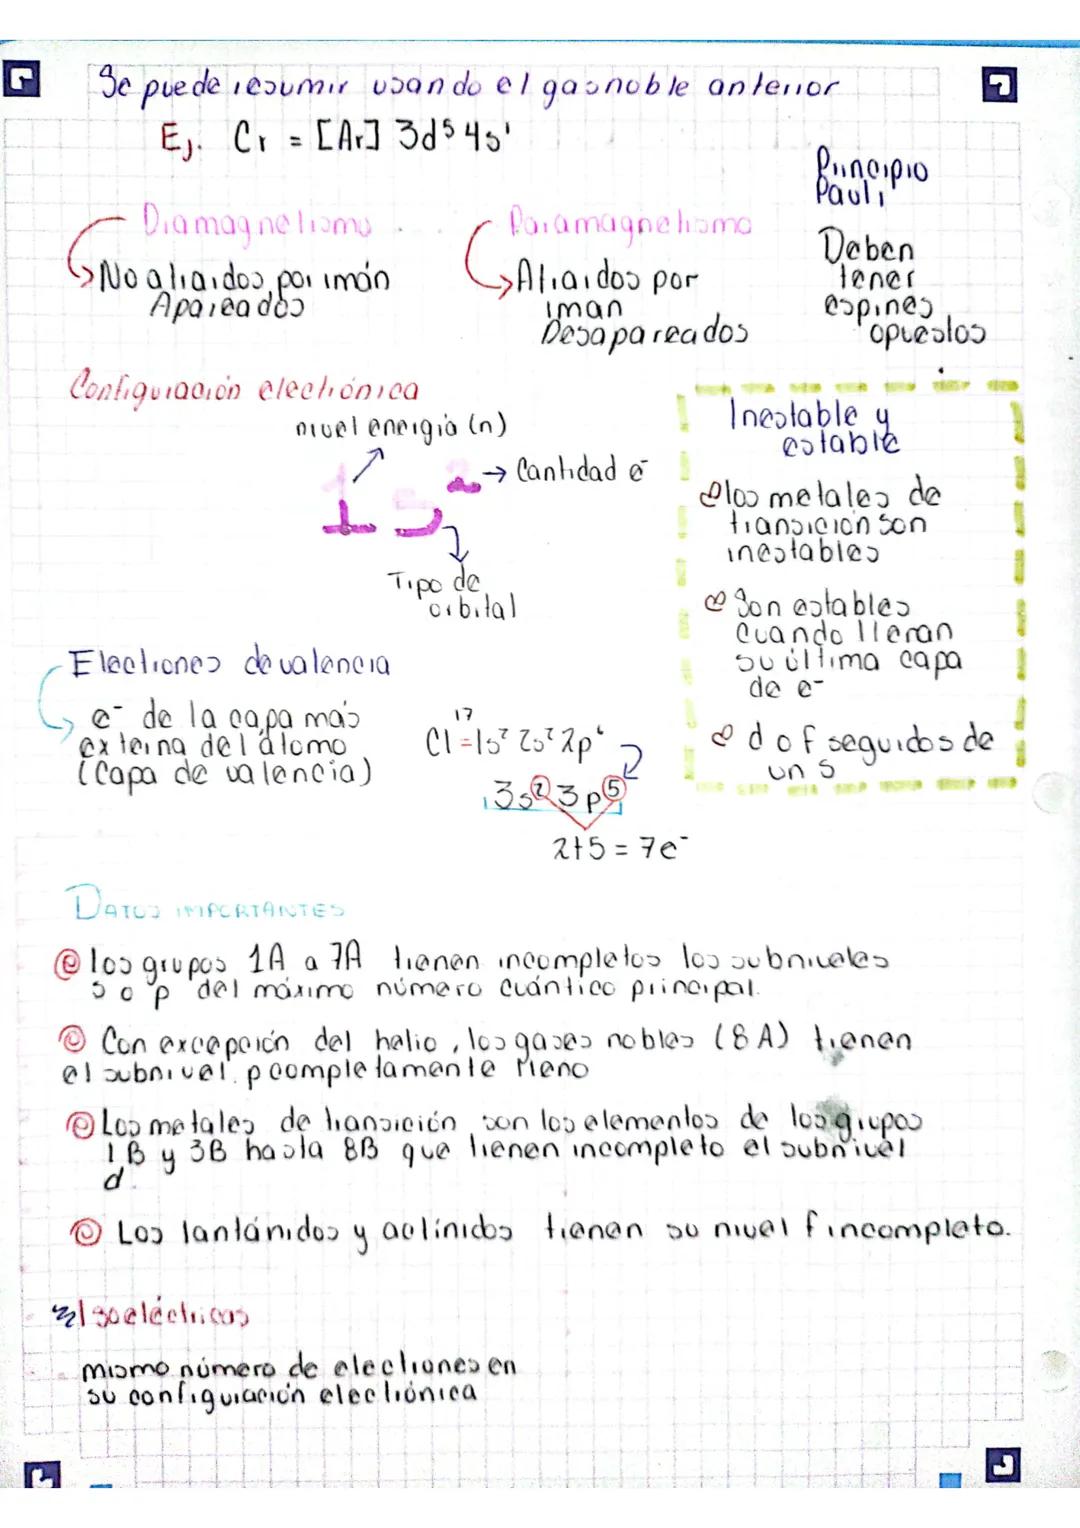 Se puede resumir usando el gas noble anterior
Ej. Cr = [Ar] 3d⁵ 4s¹
Diamagnetismo
No atraidos por imán
Apareados
Paramagnetismo
Atraidos por
iman
Desapareados
Principio
Pauli
Deben
tener
espines
opuestos
Configuración electrónica
nivel energía (n)
1s² → Cantidad e⁻
Tipo de
orbital
Inestable y
estable
los metales de
transición son
inestables
Son estables
cuando lleran
su última capa
de e⁻
d o f seguidos de
un s
Electrones de valencia
e⁻ de la capa más
externa del átomo
(Capa de valencia)
17
Cl = 1s² 2s² 2p⁶
3s² 3p⁵
2+5 = 7e⁻
DATOS IMPORTANTES
los grupos 1A a 7A tienen incompletos los subniveles
s o p del máximo número cuántico principal.
Con excepción del helio, los gases nobles (8A) tienen
el subnivel p completamente lleno
Los metales de transición son los elementos de los grupos
1B y 3B hasta 8B que tienen incompleto el subnivel
d.
Los lantánidos y actínidos tienen su nivel f incompleto.
Isoeléctricas
mismo número de electrones en
su configuración electrónica